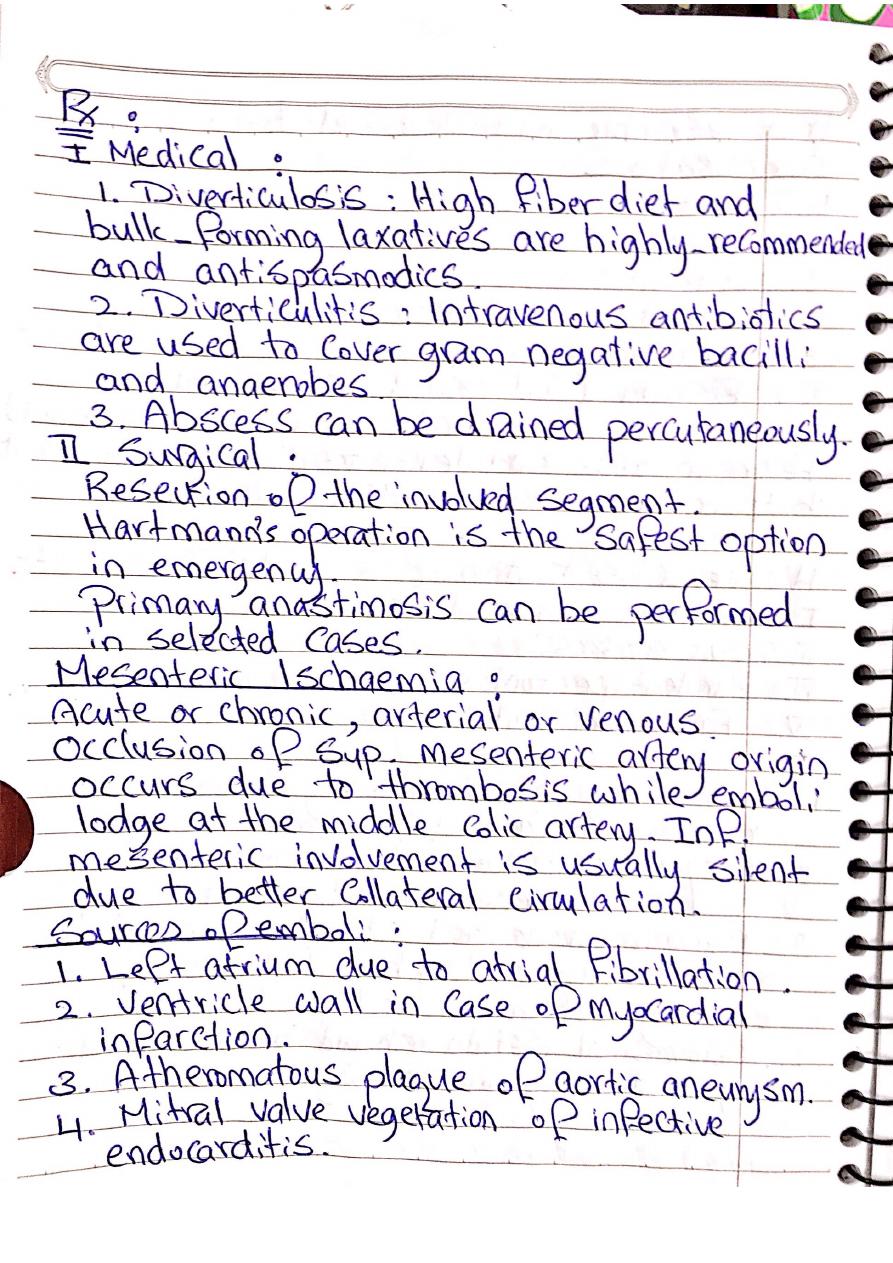 Rx :
I Medical :
1. Diverticulosis : High fiber diet and
bulk-forming laxatives are highly-recommended
and antispasmodics.
2. Diverticulitis : Intravenous antibiotics
are used to cover gram negative bacilli
and anaerobes
3. Abscess can be drained percutaneously.
II Surgical :
Resection of the involved segment.
Hartmann's operation is the safest option
in emergency.
Primary anastimosis can be performed
in selected cases.
Mesenteric Ischaemia :
Acute or chronic, arterial or venous.
Occlusion of Sup. mesenteric artery origin
occurs due to thrombosis while emboli
lodge at the middle colic artery. Inf.
mesenteric involvement is usually silent
due to better collateral circulation.
Sources of emboli :
1. Left atrium due to atrial fibrillation.
2. Ventricle wall in case of myocardial
infarction.
3. Atheromatous plaque of aortic aneurysm.
4. Mitral valve vegetation of infective
endocarditis.